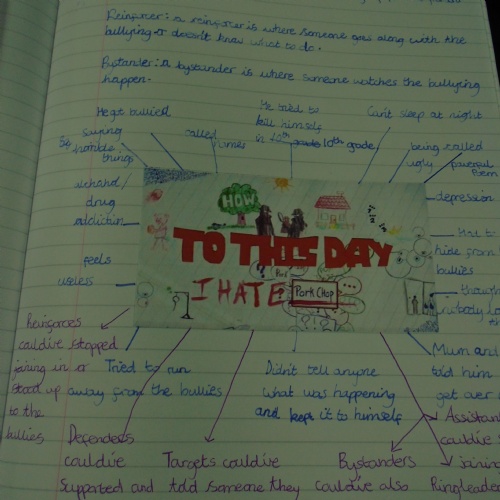 Reinforcer: a reinforcer is where someone goes along with the
bullying or doesn't know what to do.
Bystander: a bystander is where someone watches the bullying
happen.
He got bullied
saying
horrible
things
called
names
He tried to
kill himself
in 10th grade 10th grade
Can't sleep at night
being called
ugly
powerful
poem
alchohol/
drug
addiction
depression
Had to
hide from
bullies
feels
useless
though
nobody
HOW
TO THIS DAY
I HATE
Pork Chop
Reinforces
couldive stopped
joining in or
stood up
to the
bullies
Tried to run
away from the bullies
Didn't tell anyone
what was happening
and kept it to himself
Mum and
told him
get over
Defenders
couldive
supported and
Targets couldive
told someone they
Bystanders
couldive also
Assistan
couldive
joining
Ringleade